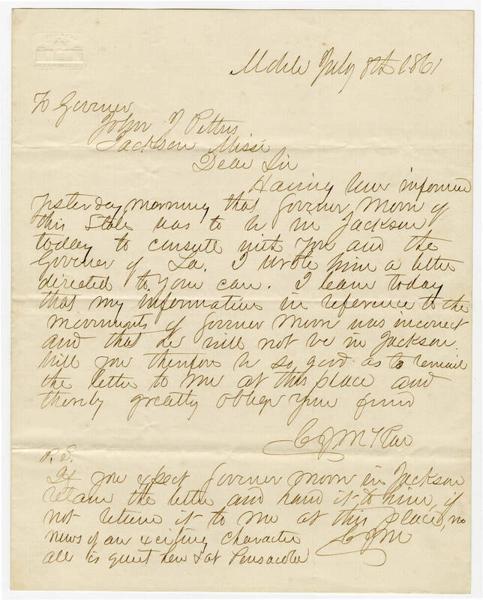 Mobile July 8th 1861
To Governer
John J Pettus
Jackson Missi
Dear Sir
Having been informed
yesterday morning that Governer Moore of
this State was to be in Jackson
today to consult with you and the
Governer of La. I wrote him a letter
directed to your care. I learn today
that my information in reference to the
movements of Governer Moore was incorrect
and that he will not be in Jackson.
Will you therefore be so good as to remail
the letter to me at this place and
thereby greatly oblige your friend
P.S.
If you expect Governer Moore in Jackson
retain the letter and hand it to him, if
not return it to me at this place, no
news of an exciting character
all is quiet here & at Pensacola